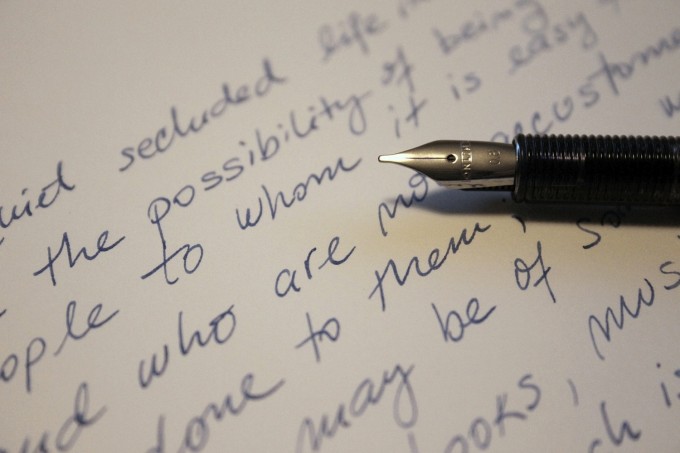 secluded life
the possibility of being
to whom it is easy
and who are not accustomed
done to them,
may be of
books, mus
is